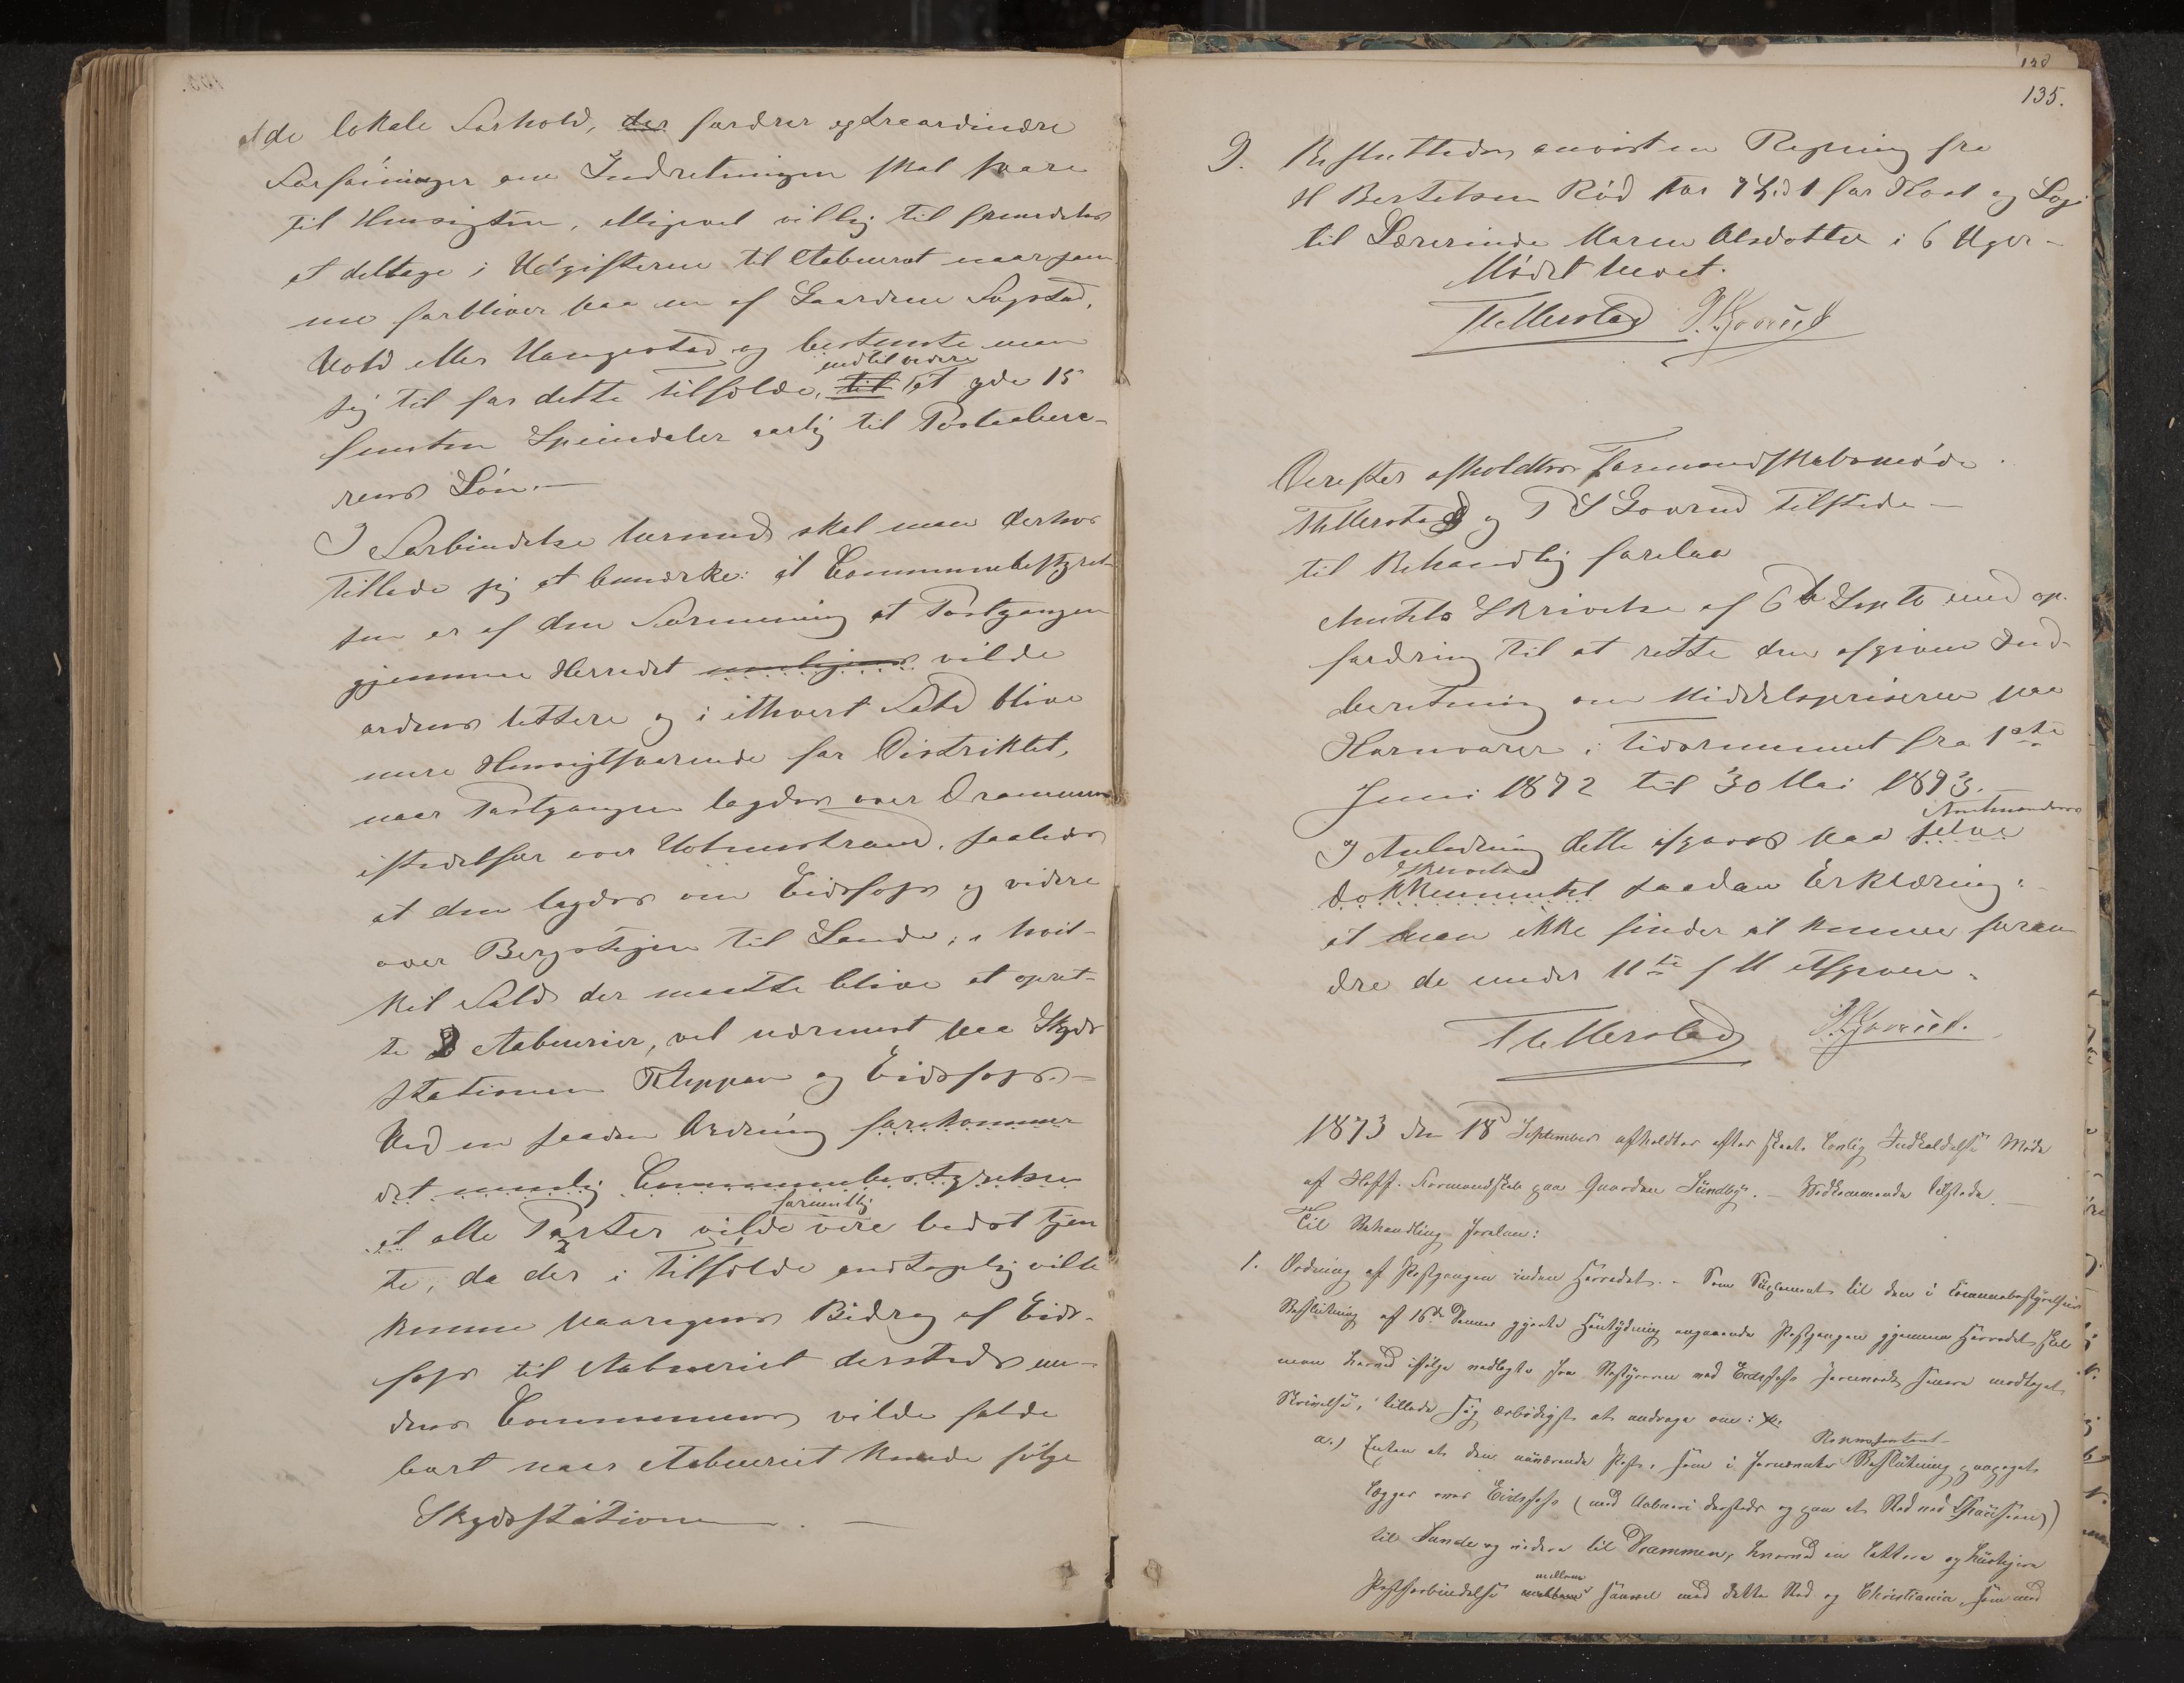 at de lokale Forhold, der fordrer extraordinære
Forføininger om Indretningen skal svare
til Hensigten, alligevel villig til fremdeles
at deltage i Udgifterne til Aabneriet naar sam-
me forbliver paa en af Gaardene Sogstad,
Vold eller Haugestad og bestemte man
indtil videre
sig til for dette Tilfælde, til at yde 15
femten Speciedaler aarlig til Postaabne-
rens Løn.—
I Forbindelse hermed skal man derhos
tillade sig at bemærke: at Communebestyrel-
sen er af den Formening at Postgangen
gjennem Herredet vilde
ordnes lettere og i ethvert Fald blive
mere Hensigtsvarende for Distriktet,
naar Postgangen lagdes over Drammen
istedetfor over Holmestrand, saaledes
at den lagdes om Eidsfoss og videre
over Bergstigen til Sande; i hvil-
ket Fald der maatte blive at opret-
te 2 Aabnerier, vel nærmest paa Skyds
stationen Kleppan og Eidsfoss.—
Ved en saadan Ordning forekommer
det nemlig Communebestyrelsen
formentlig
at alle Parter vilde være bedst tjen
te, da der i Tilfælde antagelig vilde
kunne paaregnes Bidrag af Eids-
foss til Aabneriet dersteds me-
dens Communens vilde falde
bort naar Aabneriet kunde følge
Skydsstationen. —
135.
9. Besluttedes anvist en Regning fra
H Bertelsen Rød for Kost og Logi
til Lærerinde Maren Olsdatter i 6 Uger—
Mødet hævet.
THellerstad P. Gvorud
Derefter afholdtes Formandskabsmøde.
THellerstad og P Gvorud tilstede—
til Behandlig forelaa
Amtets Skrivelse af 6te Septb med op-
fordring til at rette den afgivne Ind-
beretning om Middelspriserne paa
Kornvarer i Tidsrummet fra 1ste
Juni 1872 til 30 Mai 1873.
Amtmandens
I Anledning dette afgaves paa selve
Skrivelse
dokkumentet saadan Erklæring:
at man ikke finder at kunne foran
dre de under 11te f M Afgivne.
THellerstad P. Gvorud.
1873 den 18 September afholdtes efter skeet lovlig Indkaldelse Møde
af Hoff Formandskab paa Gaarden Sundby.— Vedkommende tilstede.—
Til Behandling forelaa:
1. Ordning af Postgangen inden Herredet.— Som Suplement til den i Communebestyrelsens
Beslutning af 16de Dennes gjorte Hentydning angaaende Postgangen gjennem Herredet skal
man herved ifølge vedlagte fra Bestyreren ved Eidsfoss Jernværk senere modtagne
Skrivelse, tillade sig ærbødigst at andrage om:
Repræsentant-
a.) Enten at den nuværende Post, som i fornævnte Beslutning paapeget
lægges over Eidsfoss (med Aabneri dersteds og paa et Sted ved)
til Sande og videre til Drammen, hvorved en lettere og hurtigere
mellem
Postforbindelse saavel med dette Sted og Christiania, som med